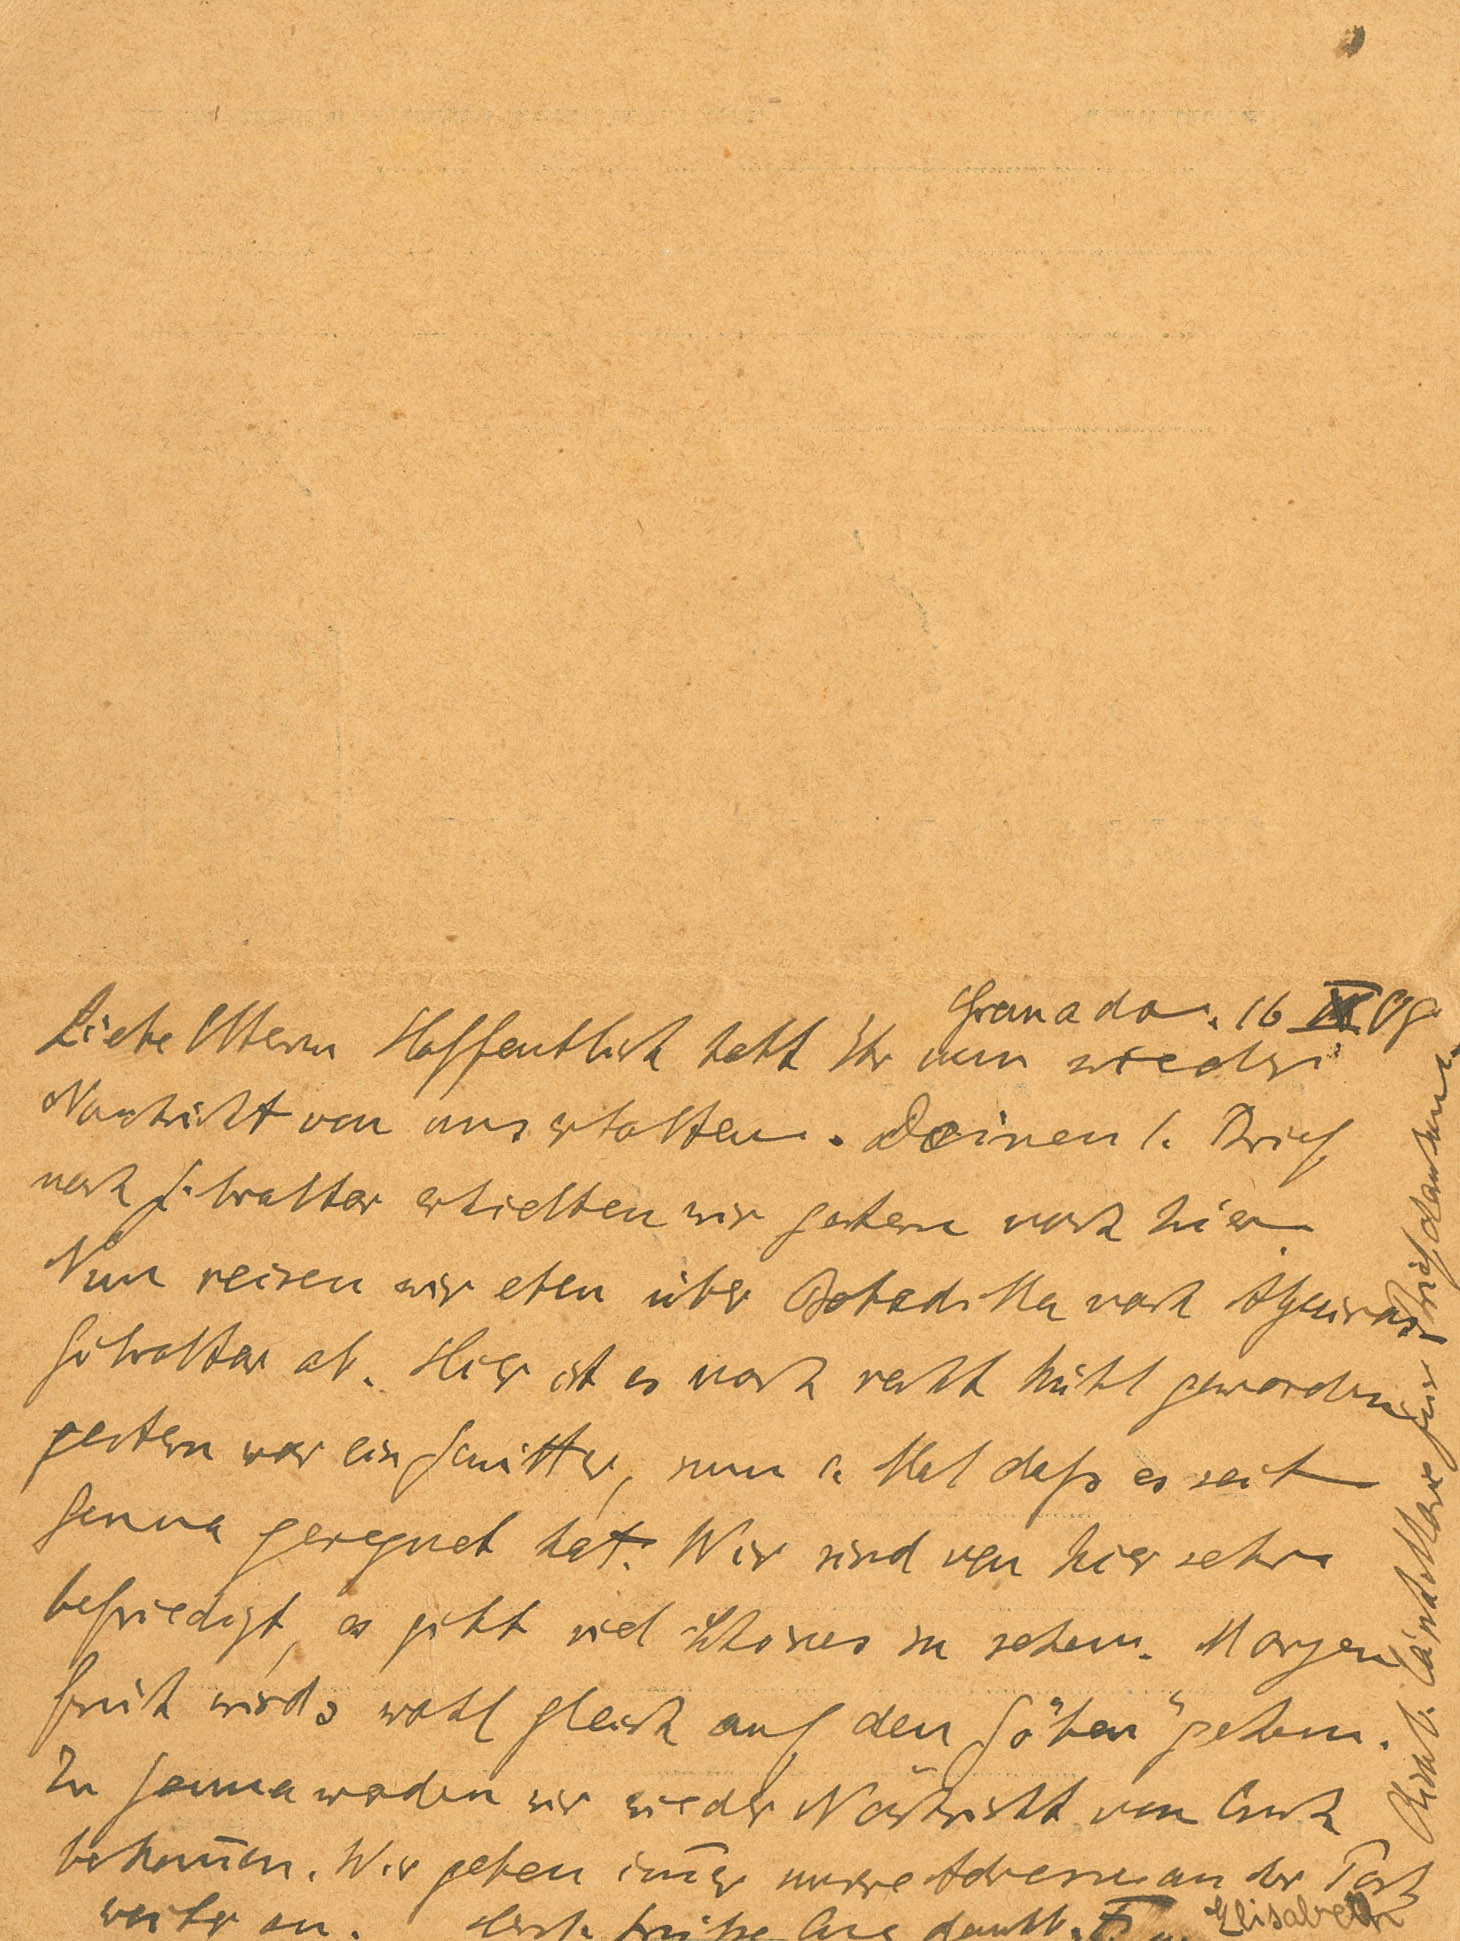 Granada. 16 IX 09.
Liebe Eltern Hoffentlich habt Ihr nun wieder
Nachricht von uns erhalten. Deinen l. Brief
nach Gibraltar erhielten wir gestern noch hier.
Nun reisen wir eben über Bobadilla nach Algeciras
Gibraltar ab. Hier ist es noch recht kühl geworden
gestern war ein Gewitter, nun 1. Mal daß es seit
Genua geregnet hat. Wir sind von hier sehr
befriedigt, es gibt viel Schönes zu sehen. Morgen
früh wirds wohl gleich auf den "Göben" gehen.
In Genua werden wir wieder Nachricht von Euch
bekom̄en. Wir geben im̄er unsere Adressen an der Post
weiter an. Herzl. Grüße Euer dankb. E u. Elisabeth
l. für Brief danken.